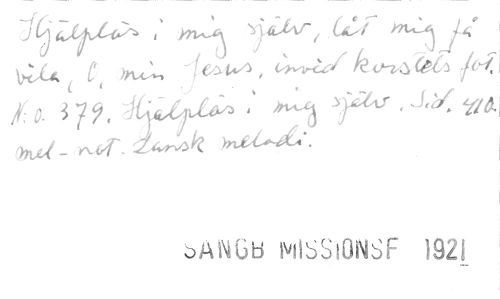 Hjälplös i mig själv, låt mig få
vila, O, min Jesus, invid korsets fot.
N:o. 379. Hjälplös i mig själv. Sid. 410.
mel-not. Dansk melodi.
SANGB MISSIONSF 1921